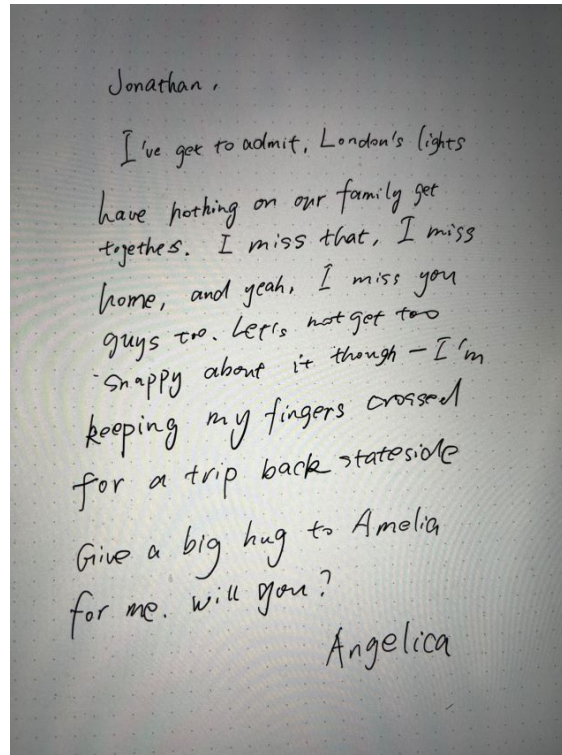 Jonathan,
I've got to admit, London's lights
have nothing on our family get
togethes. I miss that, I miss
home, and yeah, I miss you
guys too. Let's not get too
snappy about it though – I'm
keeping my fingers crossed
for a trip back stateside
Give a big hug to Amelia
for me. will you?
Angelica